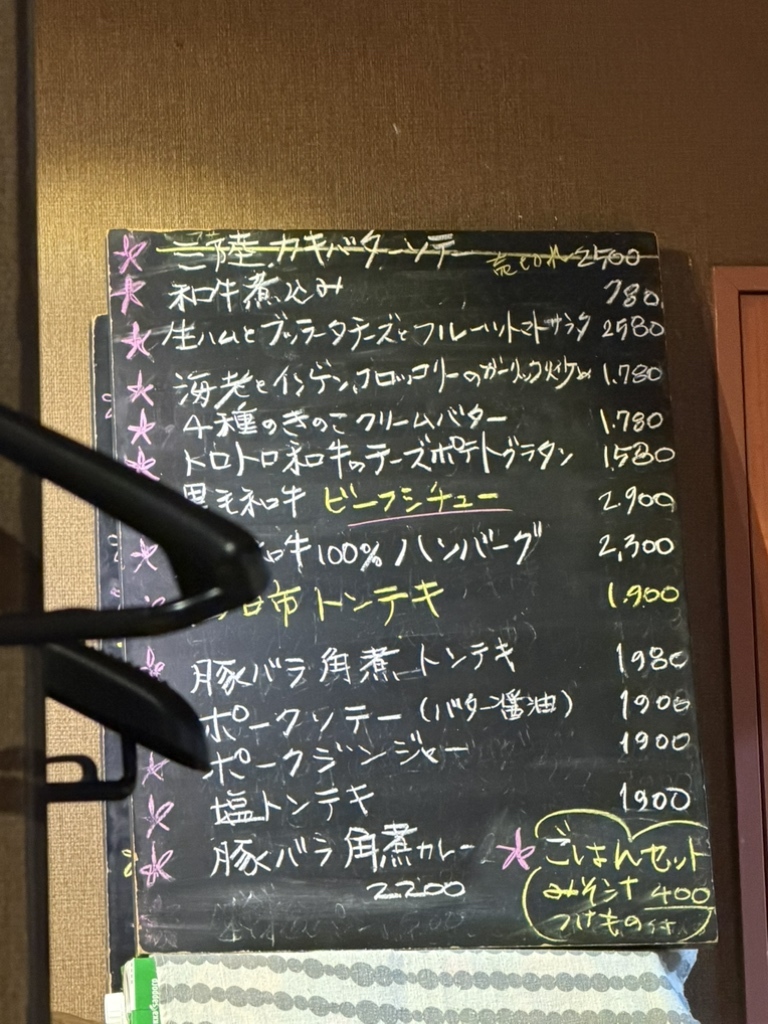 三陸 カキバターソテー 売切れ 2500
和牛煮込み 780
生ハムとブッラータチーズとフルーツトマトサラダ 2580
海老とインゲン、ブロッコリーのガーリック炒め 1.780
4種のきのこクリームバター 1.780
トロトロ和牛のチーズポテトグラタン 1580
黒毛和牛 ビーフシチュー 2.900
和牛100% ハンバーグ 2,300
市 トンテキ 1.900
豚バラ角煮トンテキ 1980
ポークソテー(バター醤油) 1900
ポークジンジャー 1900
塩トンテキ 1900
豚バラ角煮カレー
2200
ごはんセット
みそ汁 400
つけもの付